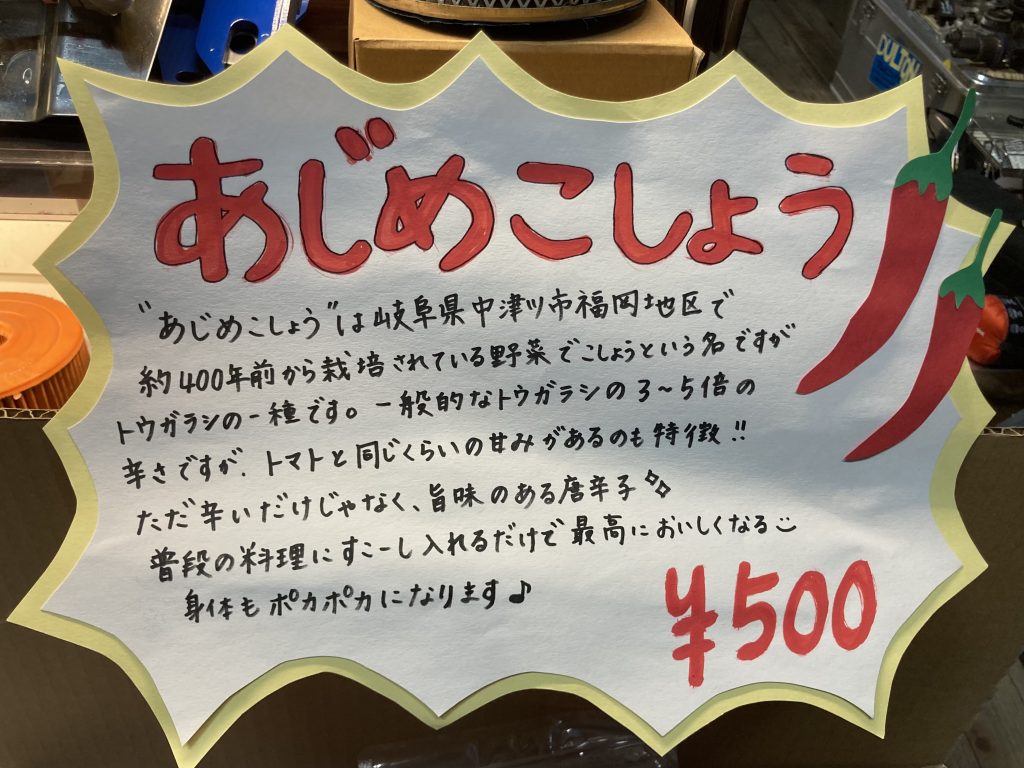 DULTON
あじめこしょう
"あじめこしょう"は岐阜県中津ツ市福岡地区で
約400年前から栽培されている野菜でこしょうという名ですが
トウガラシの一種です。一般的なトウガラシの3～5倍の
辛さですが、トマトと同じくらいの甘みがあるのも特徴!!
ただ辛いだけじゃなく、旨味のある唐辛子
普段の料理にすこーし入れるだけで最高においしくなる
身体もポカポカになります♪
¥500